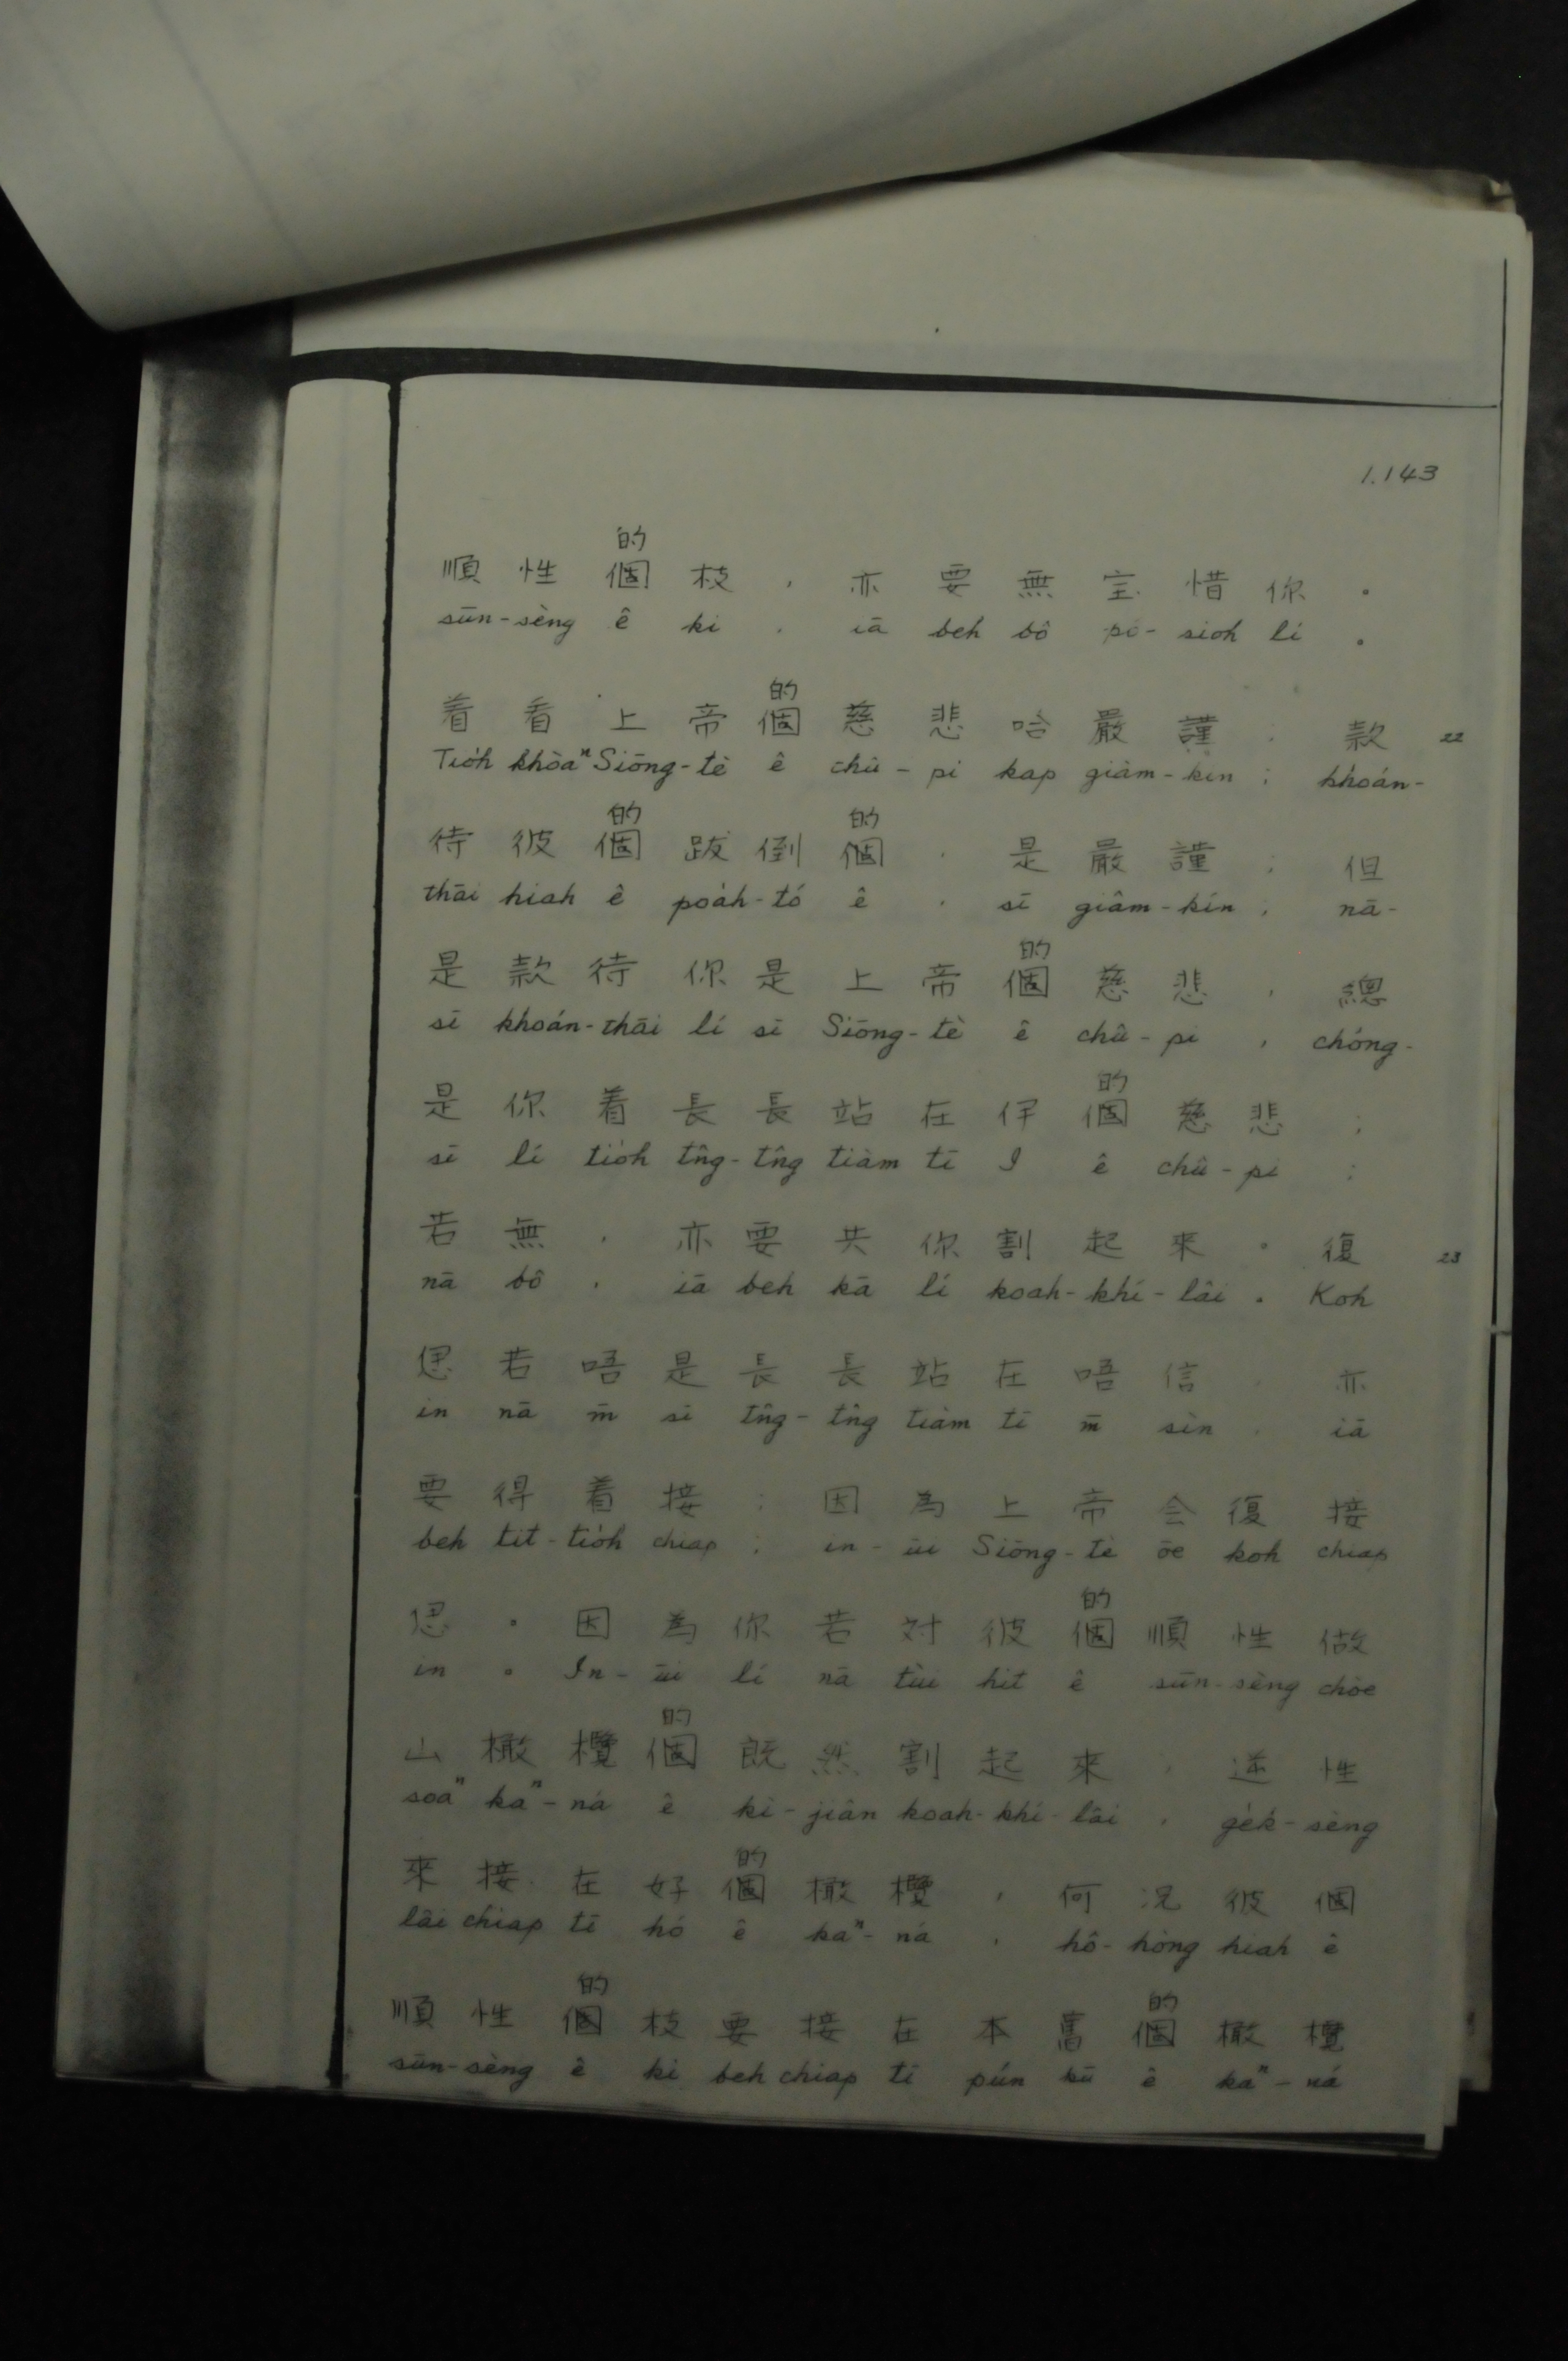 1.143
的
順性個枝，亦要無宝惜你。
sūn-sèng ê ki , iā beh bô pó-sioh lí .
的
着看上帝個慈悲哈嚴謹；款 22
Tio̍h khòaⁿ Siōng-tè ê chû-pi kap giâm-kín ; khoán-
的 的
待彼個跋倒個，是嚴謹；但
thāi hiah ê poa̍h-tó ê , sī giâm-kín ; nā-
的
是款待你是上帝個慈悲，總
sī khoán-thāi lí sī Siōng-tè ê chû-pi , chóng-
的
是你着長長站在伊個慈悲；
sī lí tio̍h tn̂g-tn̂g tiàm tī I ê chû-pi ;
若無，亦要共你割起來。復 23
nā bô , iā beh kā lí koah-khí-lâi . Koh
偲若唔是長長站在唔信，亦
in nā m̄ sī tn̂g-tn̂g tiàm tī m̄ sìn , iā
要得着接；因為上帝会復接
beh tit-tio̍h chiap ; in-ūi Siōng-tè ōe koh chiap
的
偲。因為你若对彼個順性做
in . In-ūi lí nā tùi hit ê sūn-sèng chòe
的
山橄欖個既然割起來，逆性
soaⁿ kaⁿ-ná ê kì-jiân koah-khí-lâi , ge̍k-sèng
的
來接在好個橄欖，何况彼個
lâi chiap tī hó ê kaⁿ-ná , hô-hòng hiah ê
的 的
順性個枝要接在本舊個橄欖
sūn-sèng ê ki beh chiap tī pún kū ê kaⁿ-ná